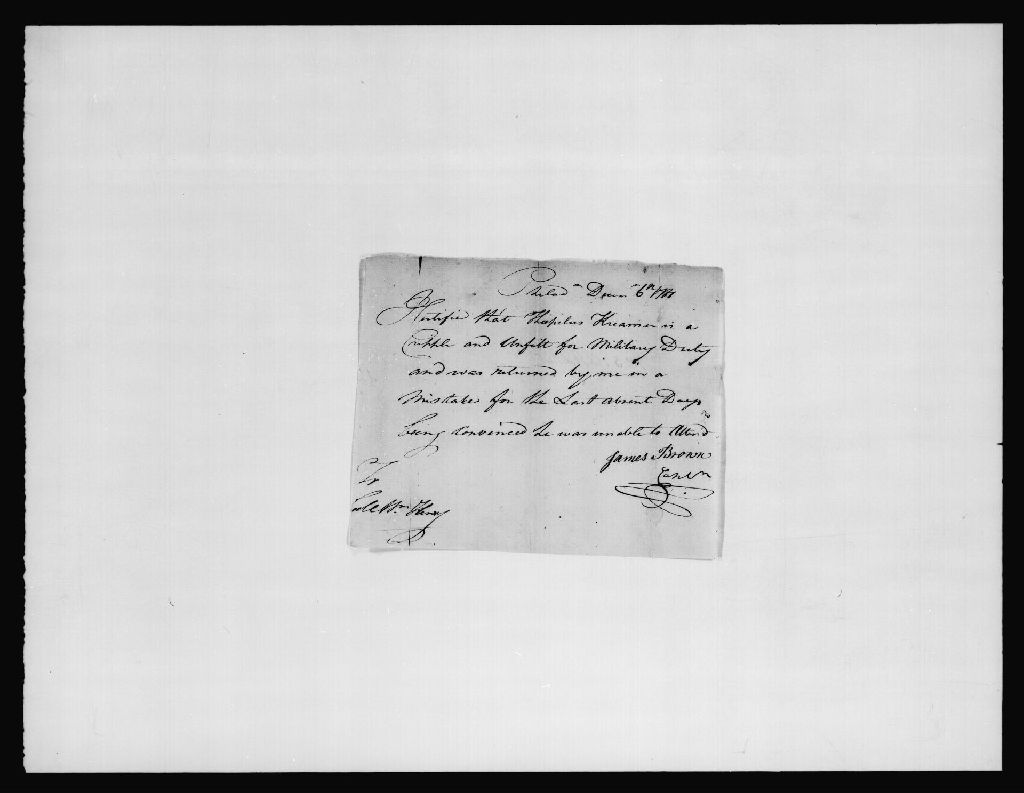 Philad.a Decem.r 6th
I Certifie that Thopilus Kreamer is a
Cripple and Unfitt for Military Duty
and was returned by me in a
Mistake for the Last absent Days
being Convinced he was unable to Attend
James Brown
To
Wm Henry